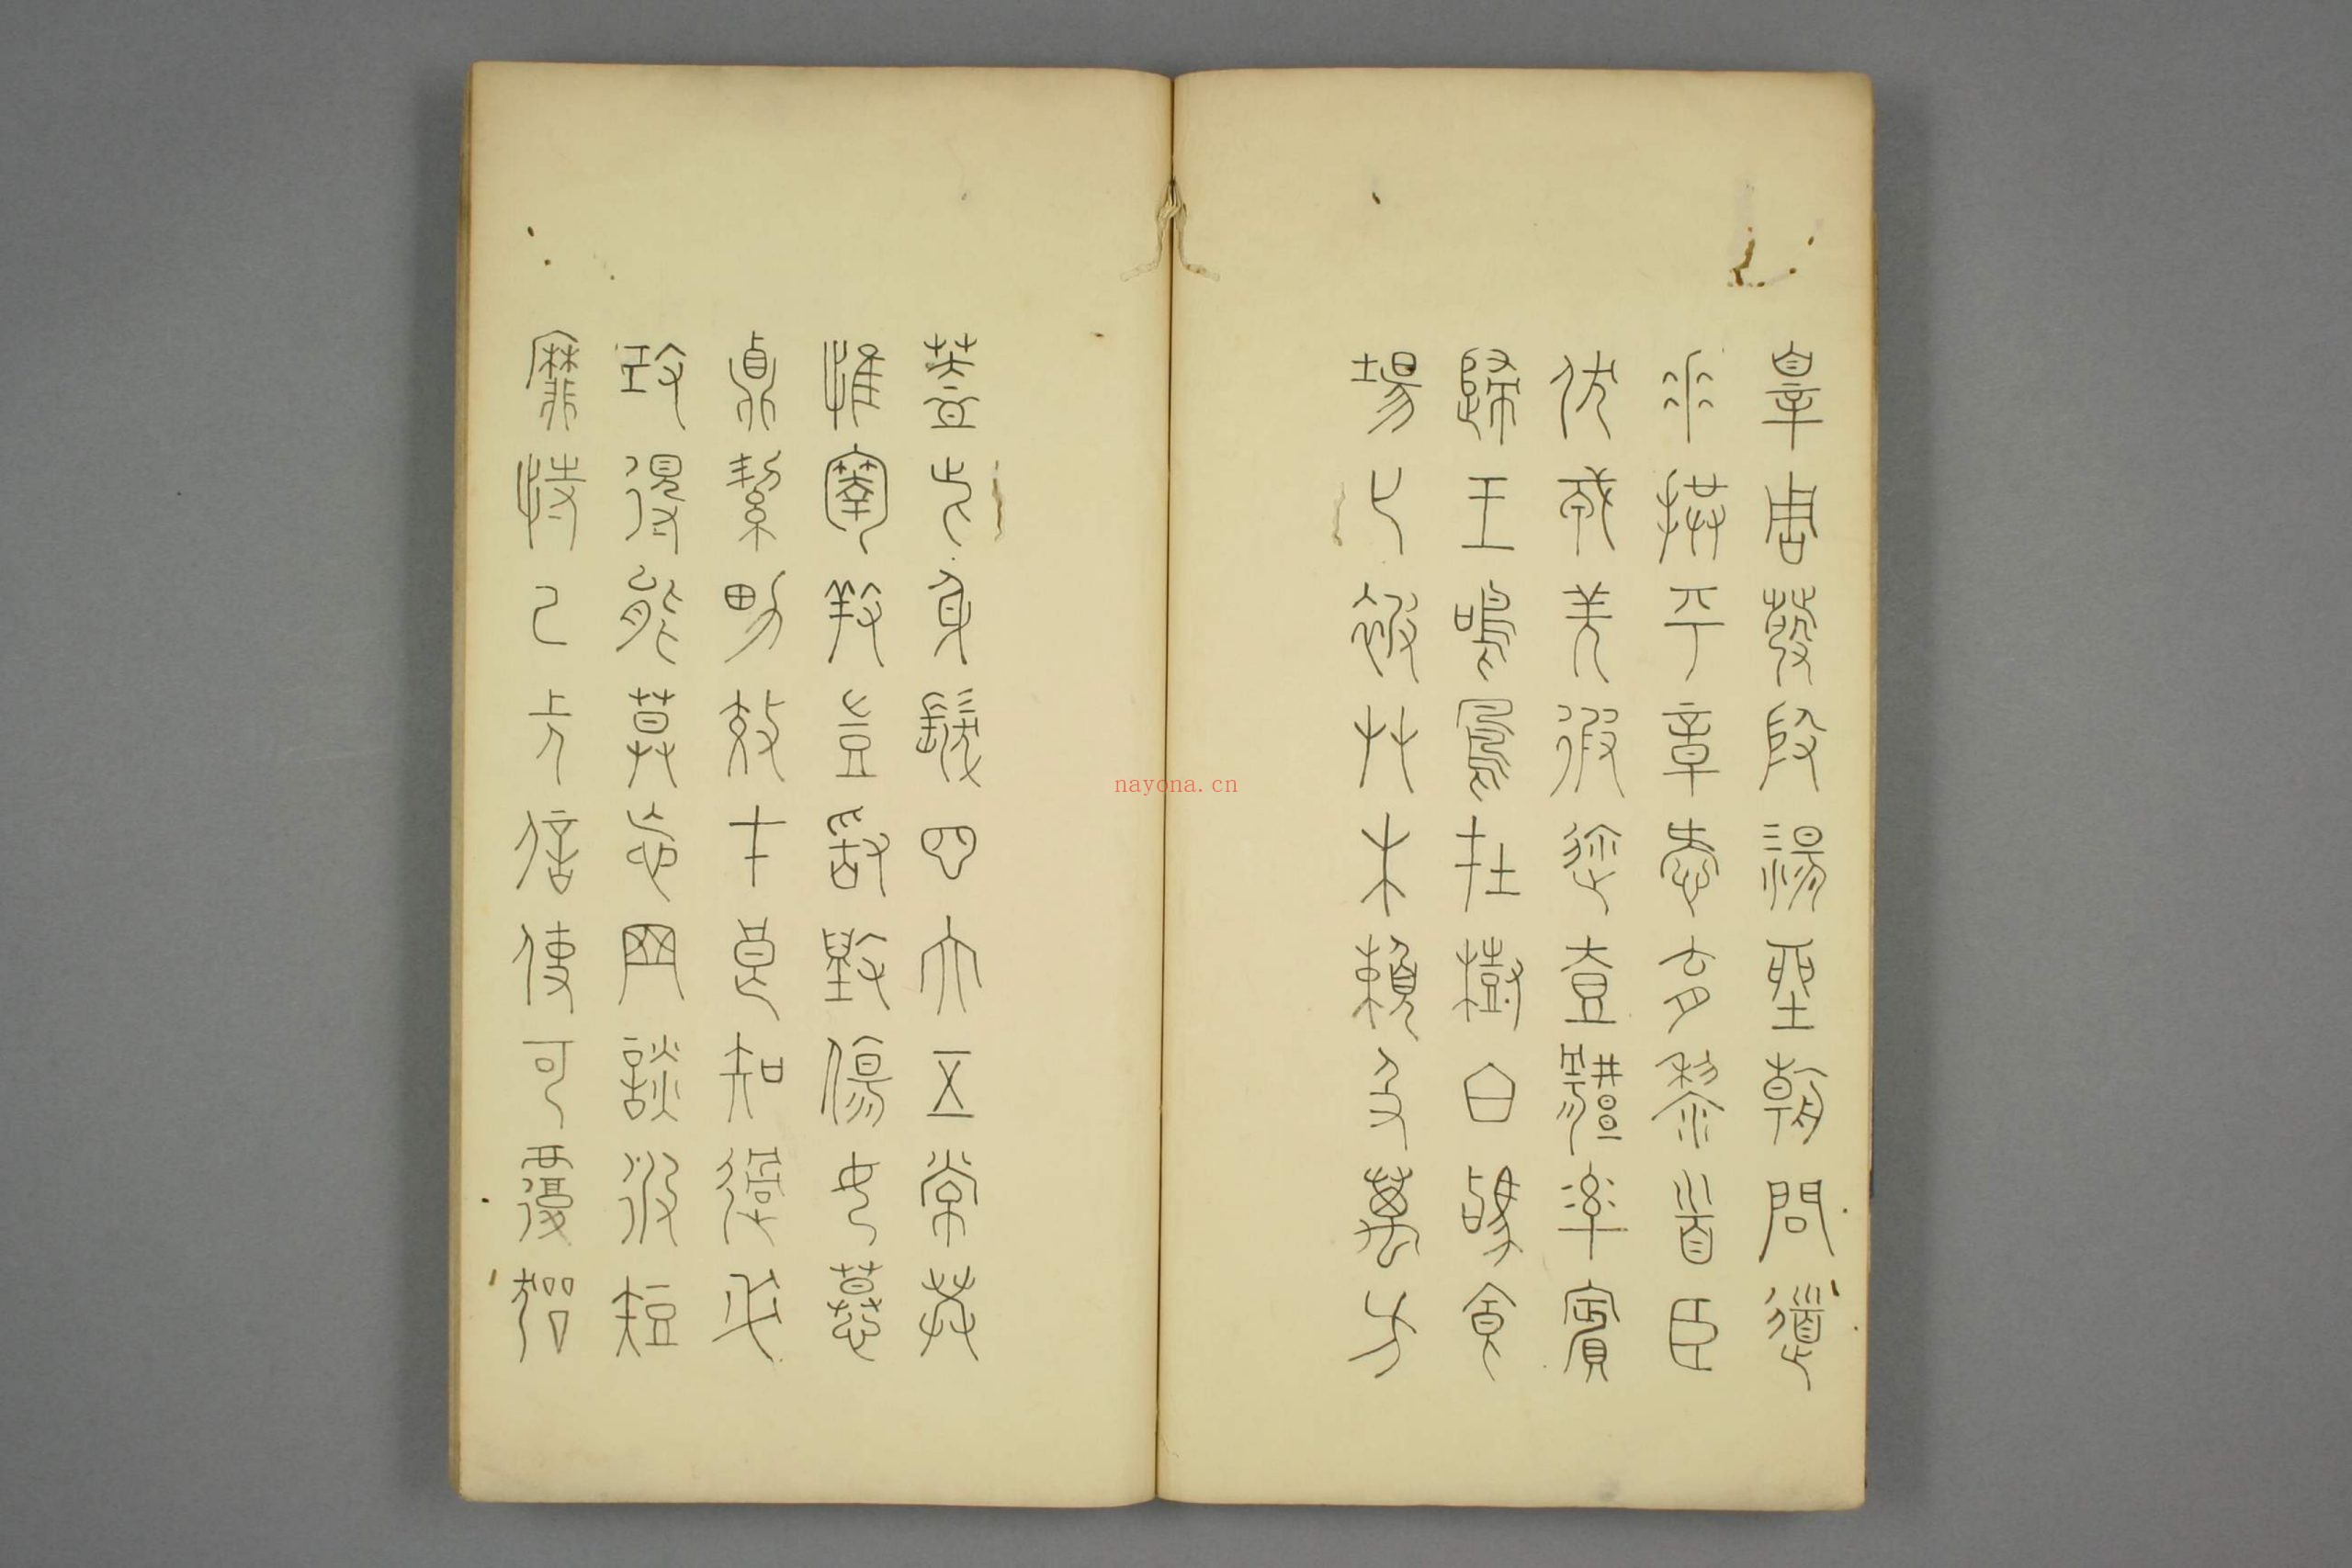 辠唐發殷湯坐朝問道
垂拱平章愛育黎首臣
伏戎羌遐邇壹體率賓
歸王鳴鳳在樹白駒食
場化被草木賴及萬方
蓋此身髮四大五常恭
惟鞠養豈敢毀傷女慕
貞絜男效才良知過必
改得能莫忘罔談彼短
靡恃己長信使可覆器
nayona.cn